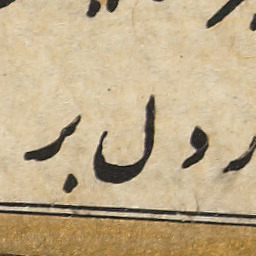 ر و ل بر